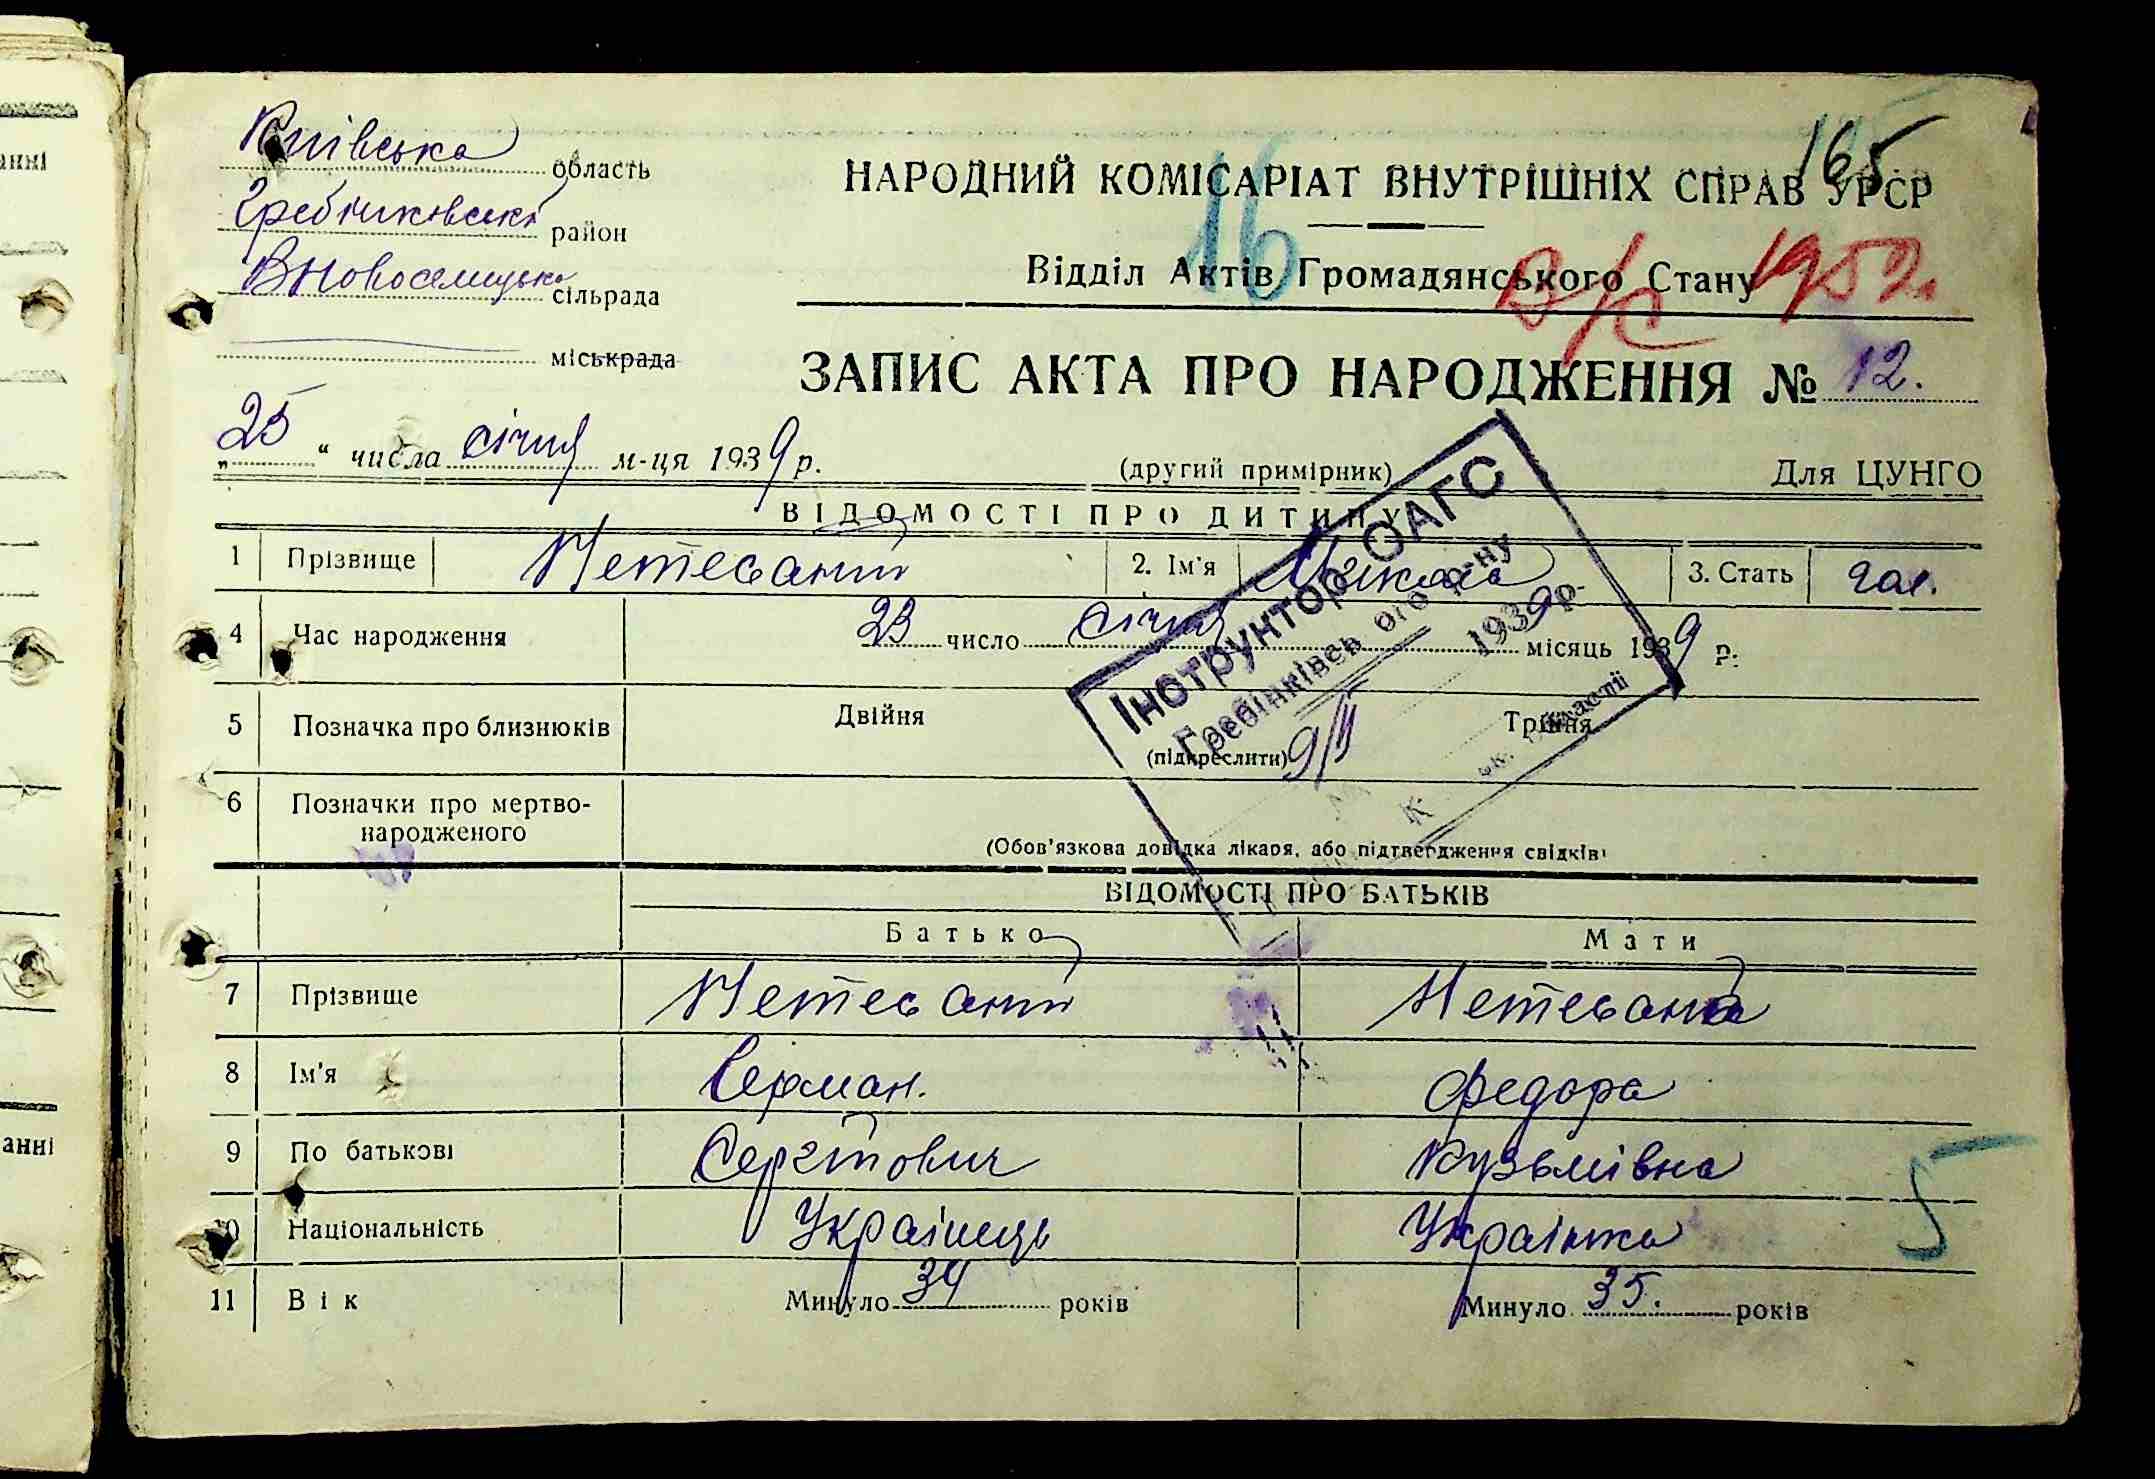 165
Київська область
Гребінківський район
ВНовоселицька сільрада
міськрада
НАРОДНИЙ КОМІСАРІАТ ВНУТРІШНІХ СПРАВ УРСР
16
Відділ Актів Громадянського Стану
в/с 1952.
ЗАПИС АКТА ПРО НАРОДЖЕННЯ № 12.
„25“ числа січня м-ця 1939 р.
(другий примірник)
Для ЦУНГО
ВІДОМОСТІ ПРО ДИТИНУ
1 Прізвище Нетесаний 2. Ім'я Микола 3. Стать чол.
4 Час народження 23 число січня місяць 1939 р.
5 Позначка про близнюків Двійня Трійня
(підкреслити)
Інструнтор ОАГС
Гребінківсь ого р-ну
1939 р.
9/ІІ
6 Позначки про мертво-
народженого
(Обов'язкова довідка лікаря, або підтвердження свідків)
ВІДОМОСТІ ПРО БАТЬКІВ
Батько Мати
7 Прізвище Нетесаний Нетесана
8 Ім'я Герман. Федора
9 По батькові Сергійович Кузьмівна
10 Національність Українець Українка
5
11 Вік Минуло 34 років Минуло 35. років
анні
анні